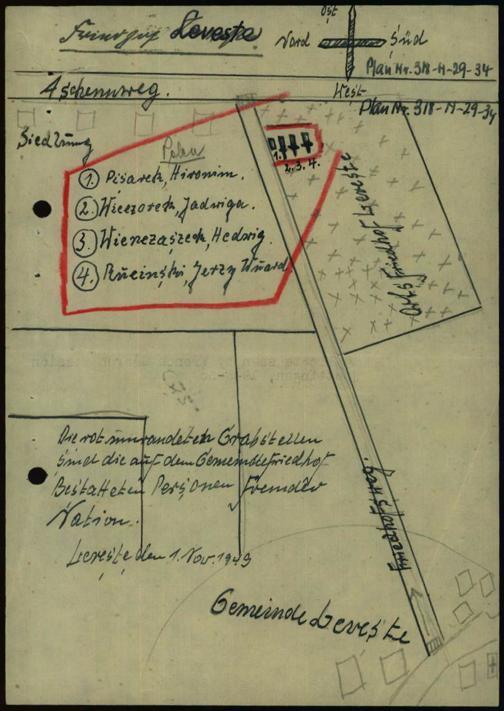 Friedhof Leveste
Ost
Nord
Süd
West
Plan Nr. 318-H-29-34
Plan Nr. 318-H-29-34
Aschenweg.
Siedlung
Polen
1. Pisarek, Hironim.
2. Wieczorek, Jadwiga.
3. Wienczaszeck, Hedwig.
4. Rucinski, Jerzy
1.
2. 3. 4.
Ortsfriedhof Leveste
Die rot umrandeten Grabstellen
sind die auf dem Gemeindefriedhof
Bestatteten Personen fremder
Nation.
Leveste den 1. Nov. 1949
Friedhofsweg.
Gemeinde Leveste